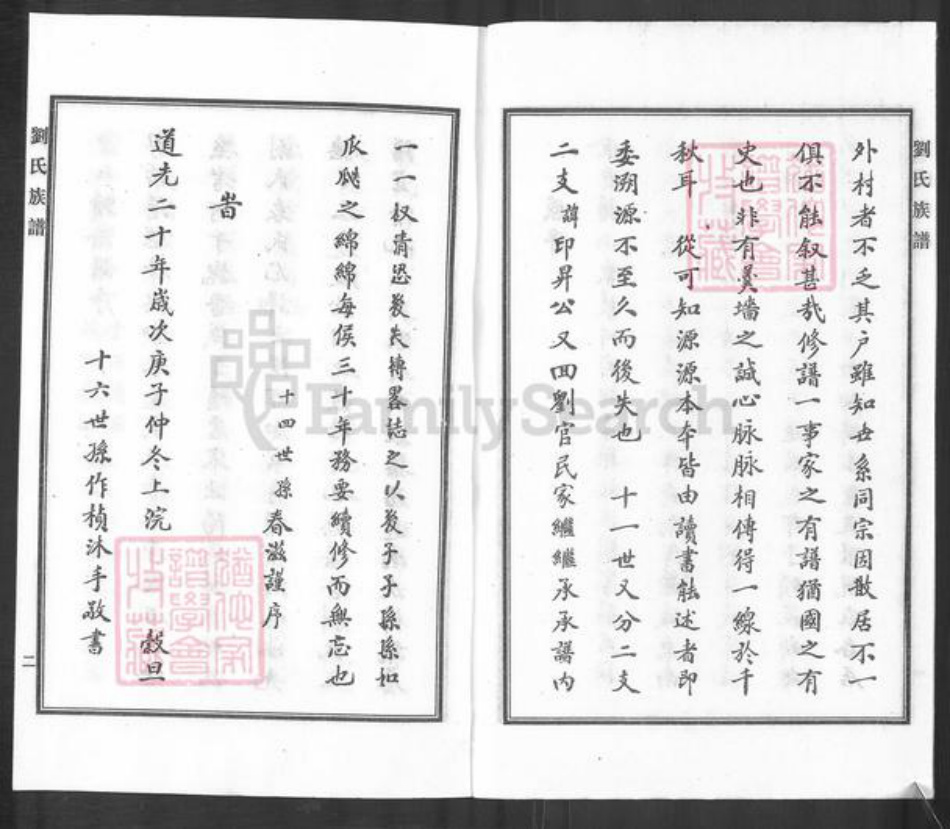 劉氏族譜
外村者不乏其户雖知世系同宗因散居不一
俱不能叙甚哉修譜一事家之有譜猶國之有
史也非有羹墻之誠心脉脉相傳得一線於千
秋耳 從可知源源本本皆由讀書能述者即
委溯源不至久而後失也 十一世又分二支
二支諱印昇公又回劉官民家繼繼承承譜内
一一叙清恐後失傳畧誌之以後子子孫孫如
瓜瓞之綿綿每侯三十年務要續修而無忘也
十四世孫 春滋謹序
峕
道光二十年歲次庚子仲冬上浣 穀旦
十六世孫作楨沐手敬書
劉氏族譜
二
FamilySearch